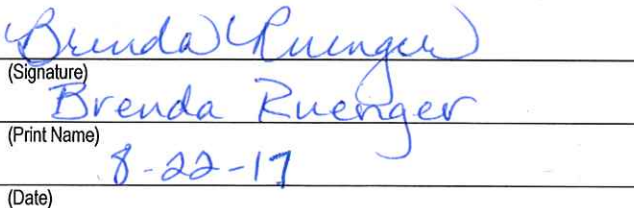 Brenda Ruenger
(Signature)
Brenda Ruenger
(Print Name)
8-22-17
(Date)